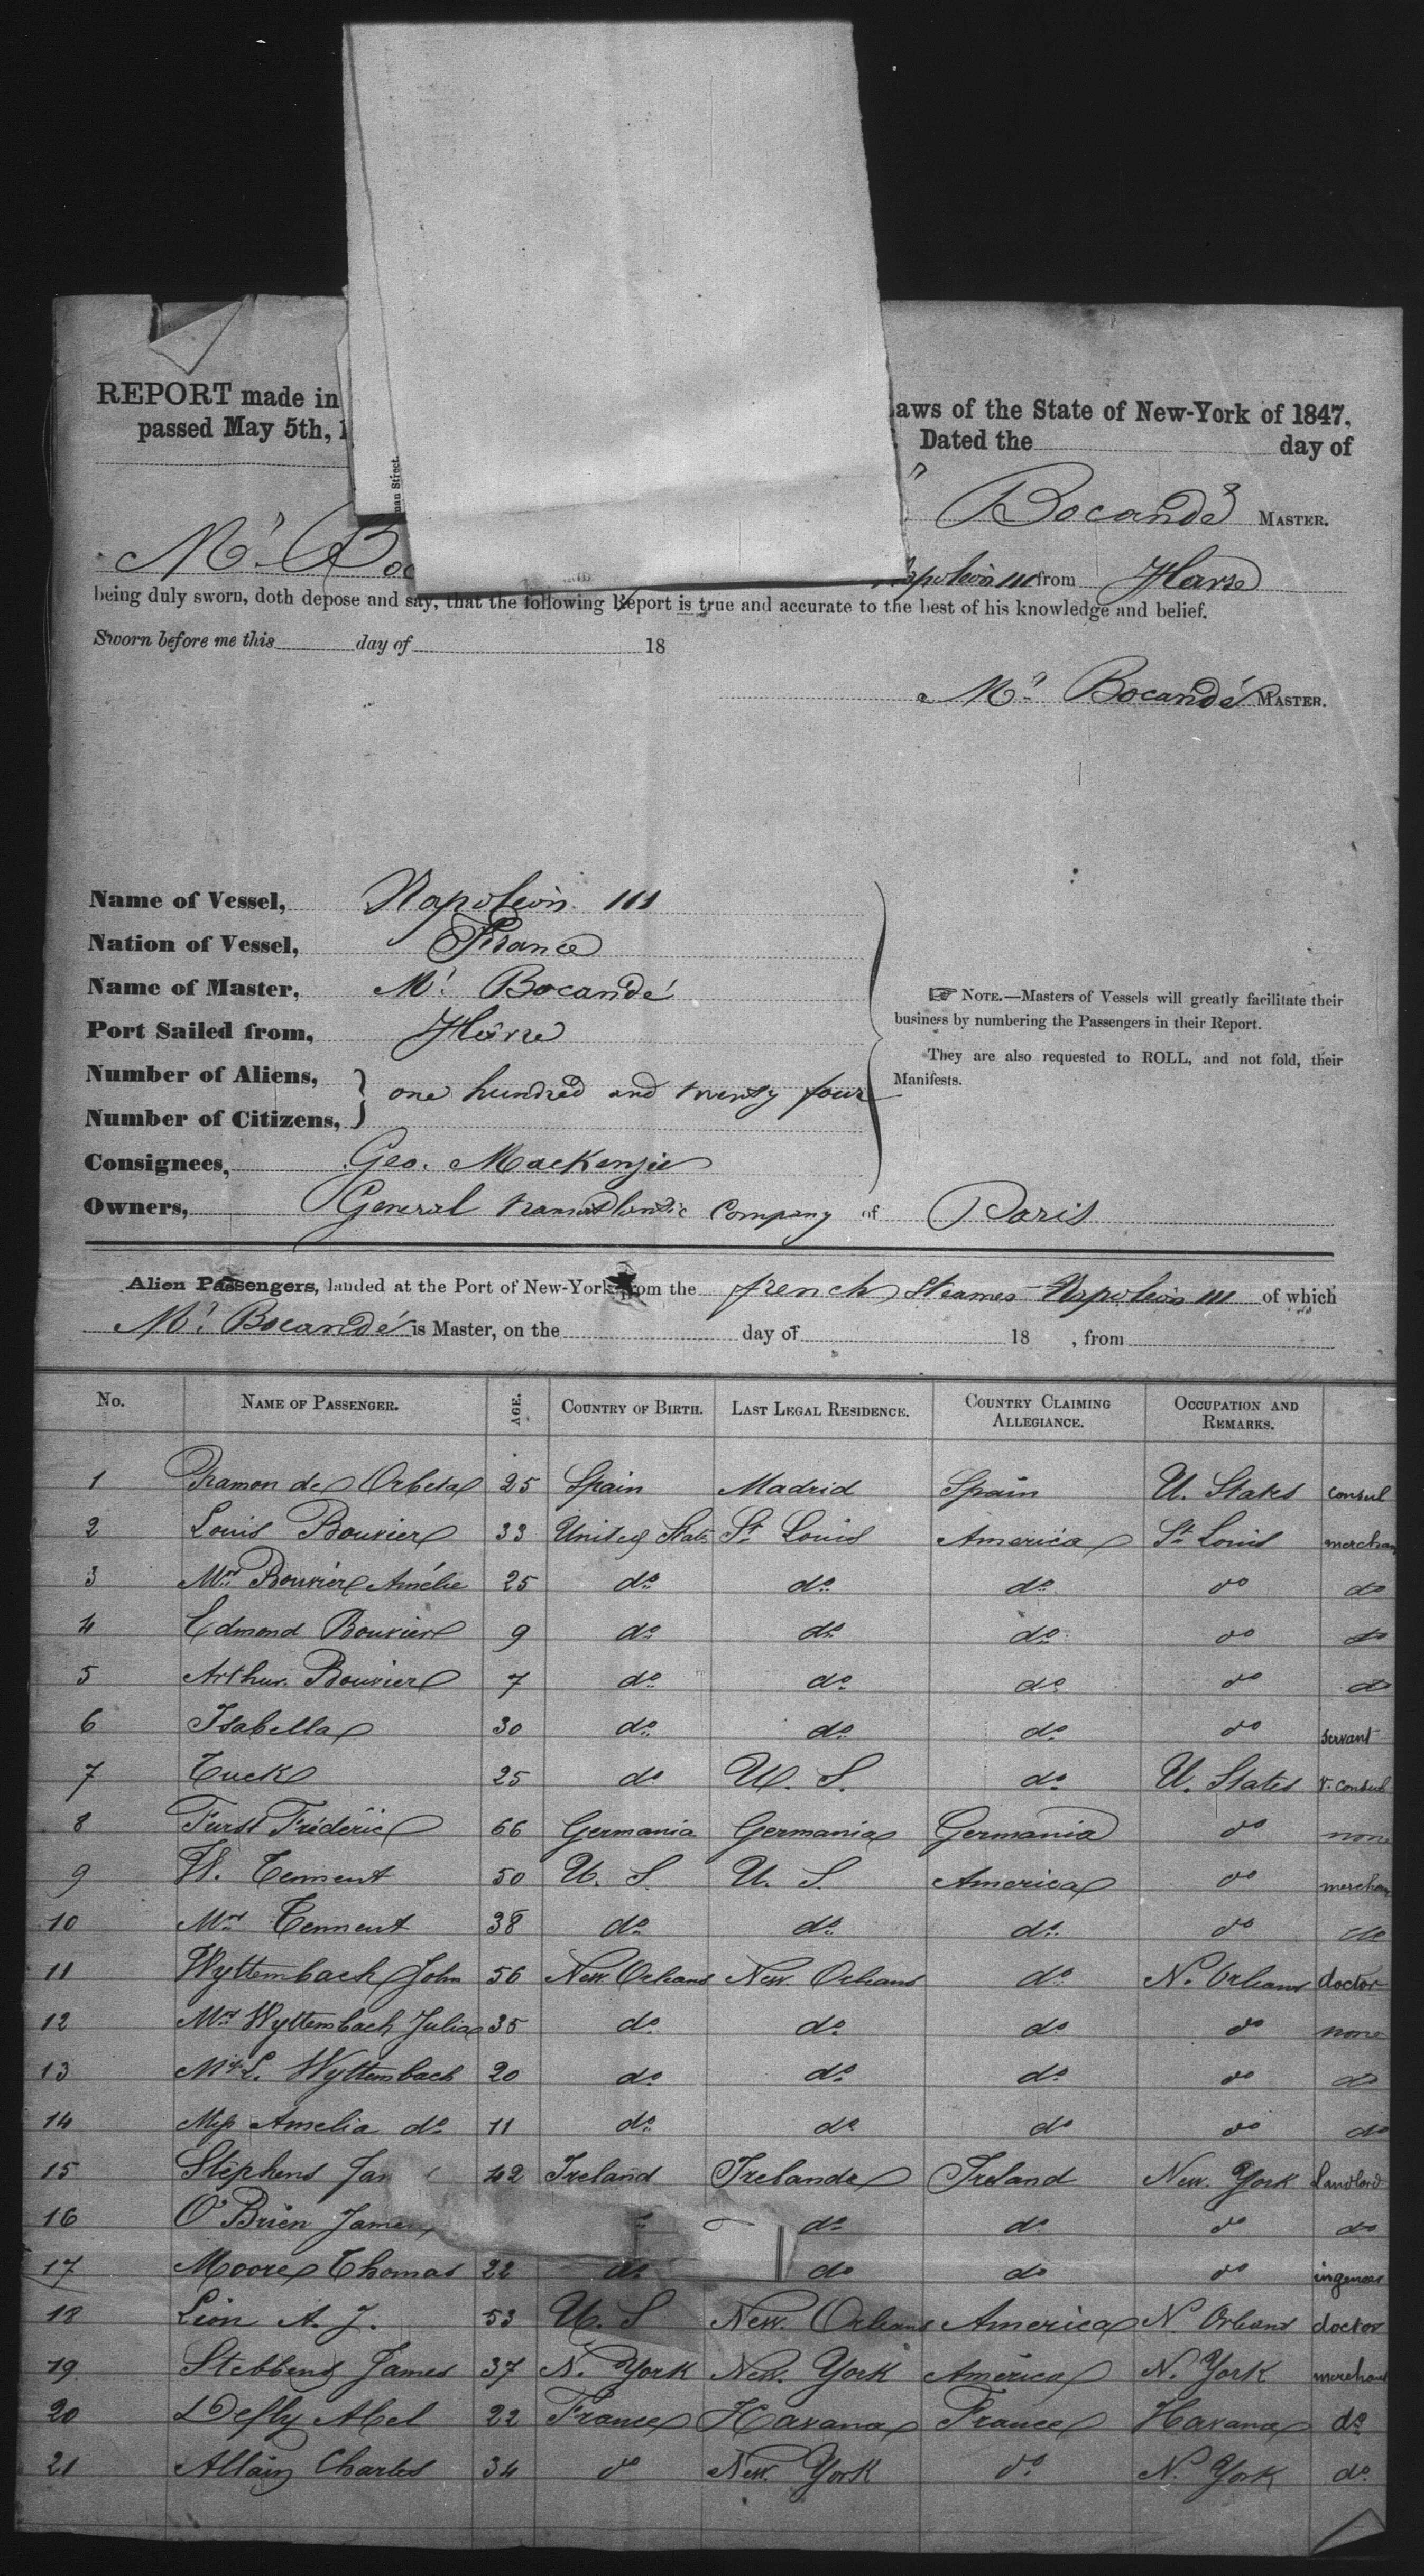 REPORT made in
aws of the State of New-York of 1847,
passed May 5th, 1
Dated the day of
man Street.
Bocandé MASTER.
Mr. Boc
apoléon III from Havre
being duly sworn, doth depose and say, that the following Report is true and accurate to the best of his knowledge and belief.
Sworn before me this day of 18
Mr. Bocandé MASTER.
Name of Vessel, Napoléon III
Nation of Vessel, France
Name of Master, Mr. Bocandé
Port Sailed from, Hâvre
Number of Aliens,
one hundred and twenty four
Number of Citizens,
Consignees, Geo. MacKenzie
Owners, General transatlantic Company of Paris
☞ NOTE.—Masters of Vessels will greatly facilitate their
business by numbering the Passengers in their Report.
They are also requested to ROLL, and not fold, their
Manifests.
Alien Passengers, landed at the Port of New-York from the french Steamer Napoléon III of which
Mr. Bocandé is Master, on the day of 18 , from
No. NAME OF PASSENGER. AGE. COUNTRY OF BIRTH. LAST LEGAL RESIDENCE. COUNTRY CLAIMING ALLEGIANCE. OCCUPATION AND REMARKS.
1 Ramon de Orbeta 25 Spain Madrid Spain U. States consul
2 Louis Bouvier 33 United States St. Louis America St. Louis merchan
3 Mrs. Bouvier Amélie 25 do. do. do. do do
4 Edmond Bouvier 9 do. do. do. do do
5 Arthur Bouvier 7 do. do. do. do do
6 Isabella 30 do. do. do. do servant
7 Tuck 25 do U. S. do. U. States v. consul
8 Furst Frédéric 66 Germania Germania Germania do none
9 W. Tennent 50 U. S. U. S. America do merchan
10 Mrs Tennent 38 do. do. do. do do
11 Wyttembach John 56 New. Orleans New. Orleans do N. Orleans doctor
12 Mrs. Wyttembach Julia 35 do. do. do do none
13 L. Wyttembach 20 do. do. do. do do
14 Miss Amelia do. 11 do. do do do do
15 Stéphens Jam 42 Ireland Irelande Ireland New. York Landlord
16 O'Brien James do. do. do do
17 Moore Thomas 22 do. do do do ingeneer
18 Lion A. J. 53 U. S New. Orleans America N. Orleans doctor
19 Stebbens James 37 N. York New. York America N. York merchant
20 Defly Abel 22 France Havana France Havana do.
21 Allain Charles 34 do New. York do. N. York do.